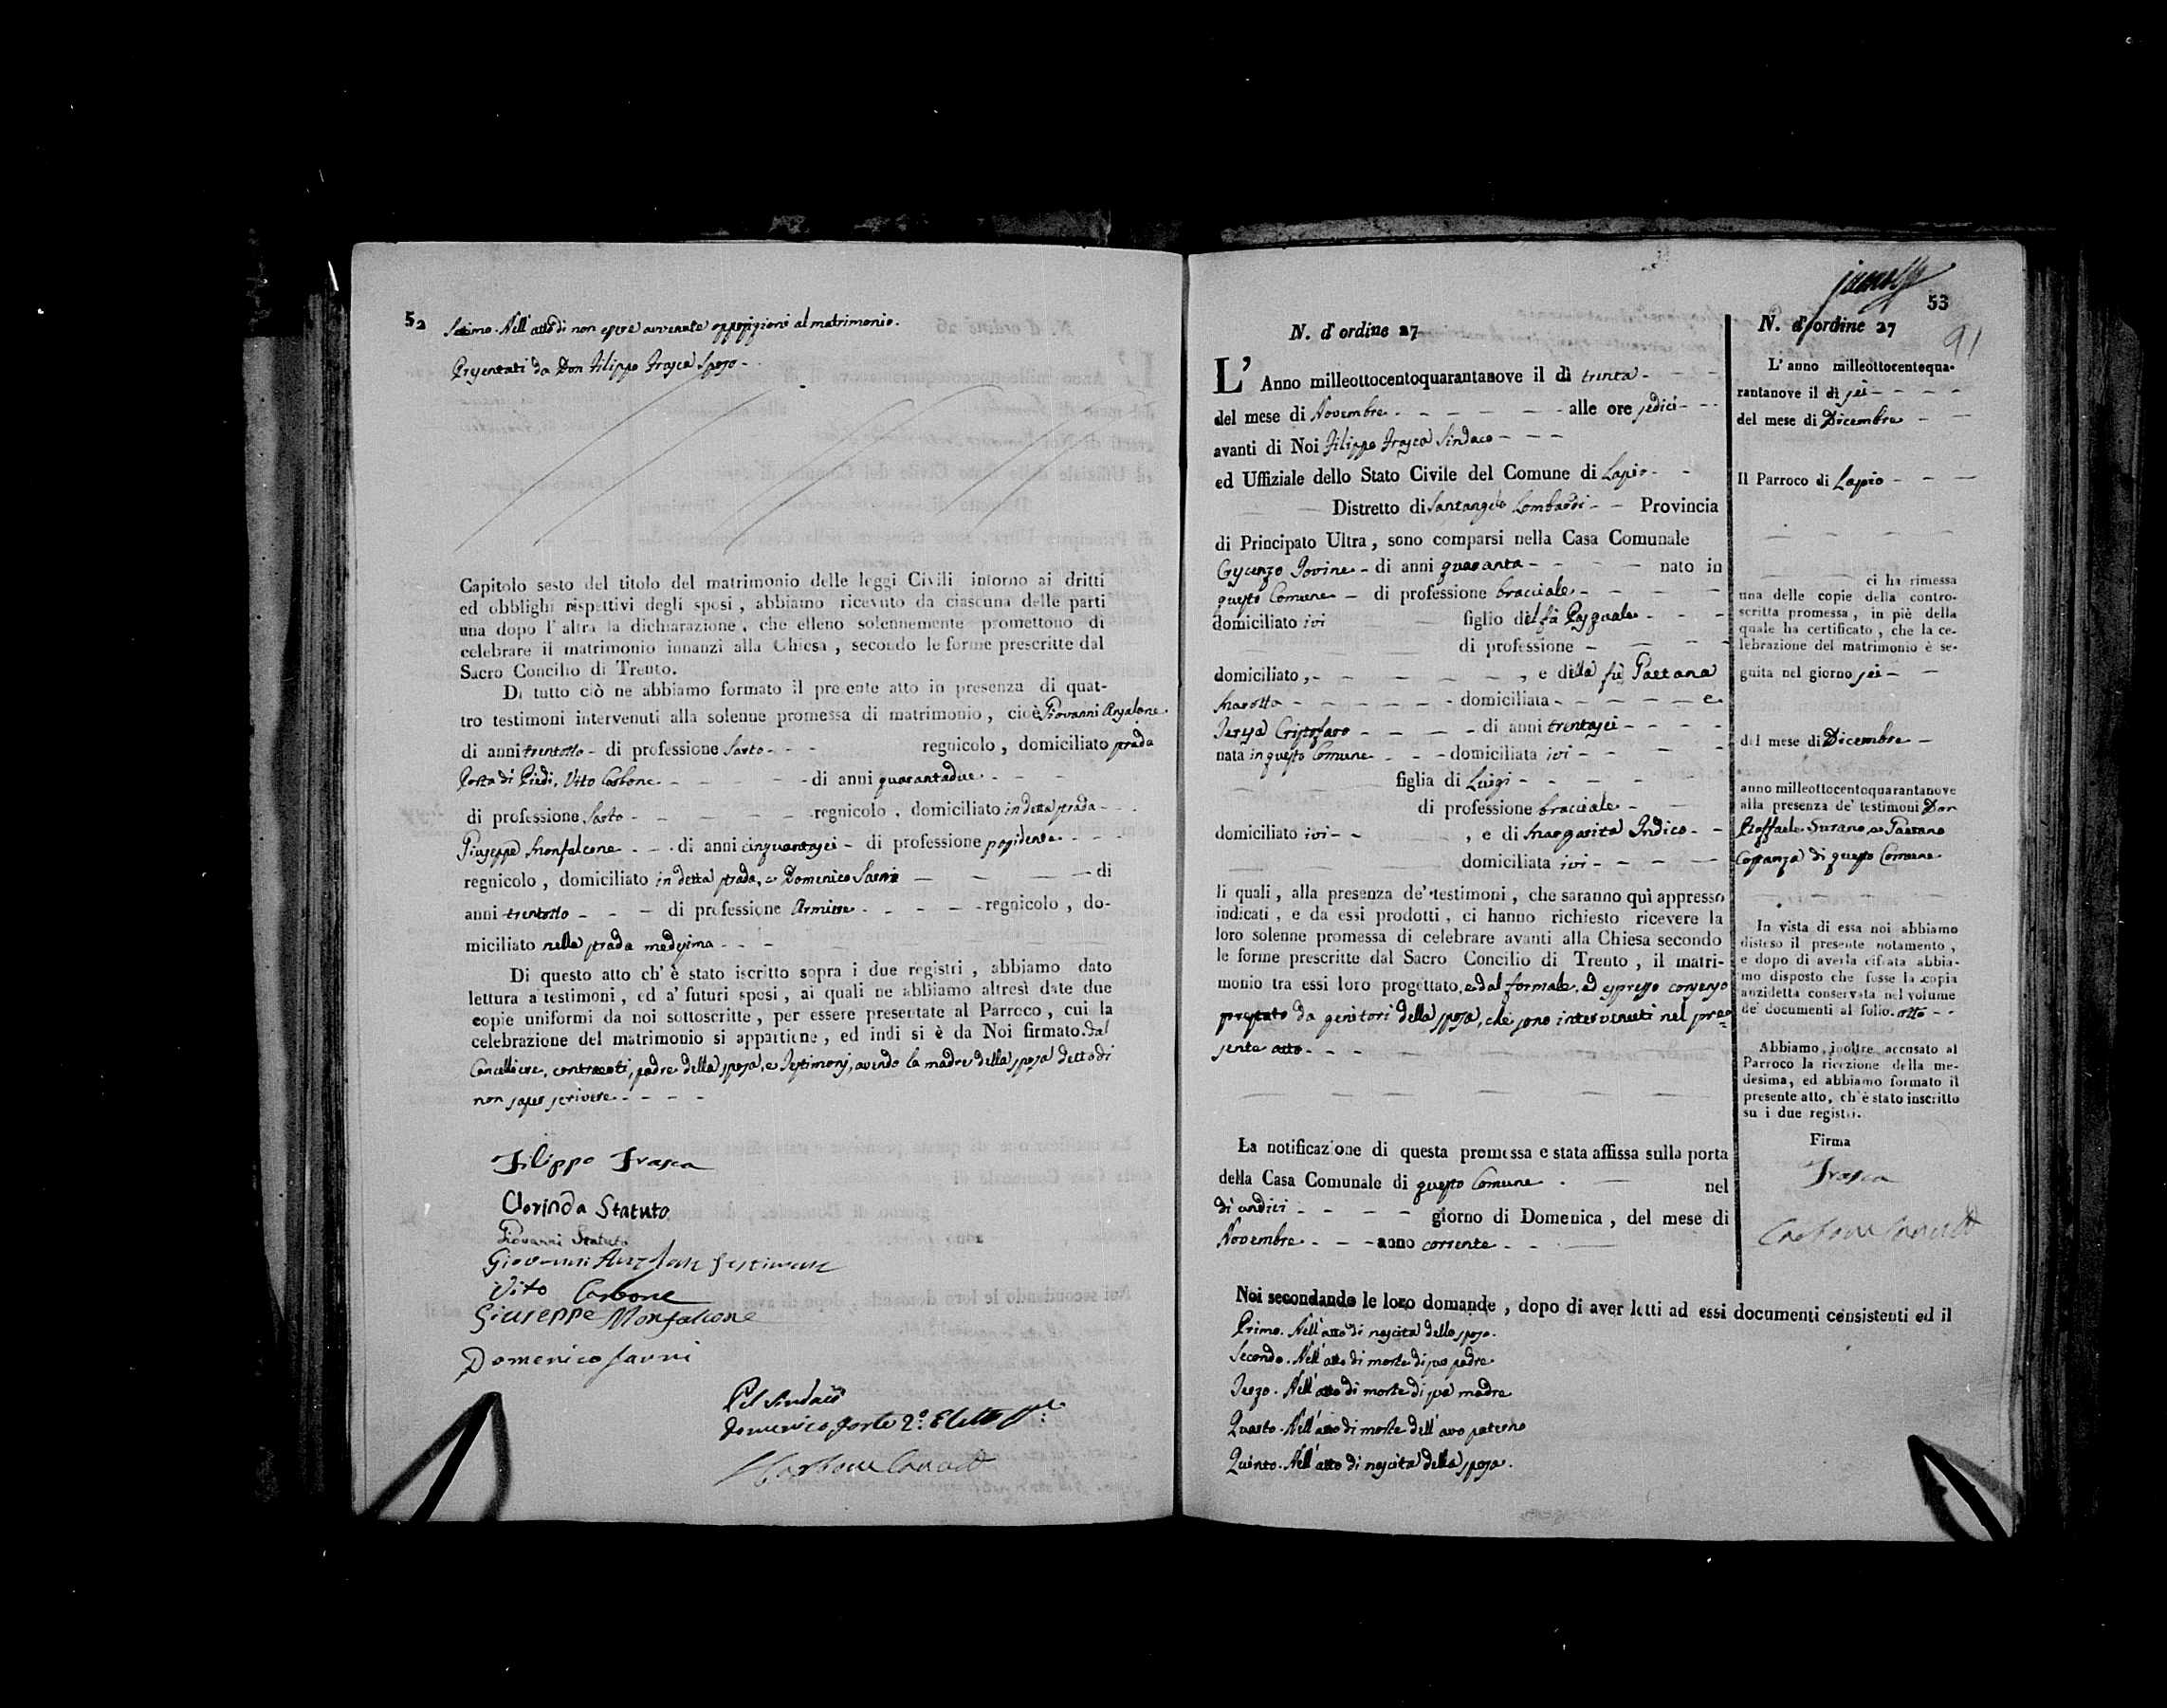 52
Settimo. Nell'atto di non essere avvenute opposizioni al matrimonio.
Presentati da Don Filippo Frasca Sposo -
Capitolo sesto del titolo del matrimonio delle leggi Civili intorno ai dritti
ed obblighi rispettivi degli sposi, abbiamo ricevuto da ciascuna delle parti
una dopo l'altra la dichiarazione, che elleno solennemente promettono di
celebrare il matrimonio innanzi alla Chiesa, secondo le forme prescritte dal
Sacro Concilio di Trento.
Di tutto ciò ne abbiamo formato il presente atto in presenza di quat-
tro testimoni intervenuti alla solenne promessa di matrimonio, cioè Giovanni Anzalone
di anni trentotto - di professione Sarto - - - regnicolo, domiciliato strada
Porta di Piedi, Vito Carbone - - - - - di anni quarantadue - - -
di professione Sarto - - - - - regnicolo, domiciliato in detta strada - - -
Giuseppe Monfalcone - - - di anni cinquantasei - di professione possidente - - -
regnicolo, domiciliato in detta strada, e Domenico Saurri - - - - di
anni trentotto - - - di professione Armiere - - - - - regnicolo, do-
miciliato nella strada medesima - - -
Di questo atto ch'è stato iscritto sopra i due registri, abbiamo dato
lettura a'testimoni, ed a'futuri sposi, ai quali ne abbiamo altresì date due
copie uniformi da noi sottoscritte, per essere presentate al Parroco, cui la
celebrazione del matrimonio si appartiene, ed indi si è da Noi firmato. dal
Cancelliere, contraenti, padre della sposa, e Testimonj, avendo la madre della sposa detto di
non saper scrivere - - - - -
Filippo Frasca
Clorinda Statuto
Giovanni Statuto
Giovanni Anzalone testimone
Vito Carbone
Giuseppe Monfalcone
Domenico Saurri
Pel Sindaco
Domenico Forte 2º Eletto
Carbone
53
91
N. d'ordine 27
L'Anno milleottocentoquarantanove il dì trenta - - -
del mese di Novembre - - - - - - alle ore sedici - - -
avanti di Noi Filippo Frasca Sindaco - - -
ed Uffiziale dello Stato Civile del Comune di Lapio - -
Distretto di Santangelo Lombardi - - Provincia
di Principato Ultra, sono comparsi nella Casa Comunale
Crescenzo Iovine - di anni quaranta - - - - nato in
questo Comune - di professione bracciale - - - -
domiciliato ivi - - figlio del fù Pasquale - - -
di professione - - - -
domiciliato, - - - - - -, e della fù Gaetana
Marotta - - - - - - domiciliata - - - - - e
Teresa Cristofaro - - - - di anni trentasei - - - -
nata in questo Comune - - - domiciliata ivi - - - -
figlia di Luigi - - - - -
di professione bracciale - -
domiciliato ivi - - , e di Margarita Indico - -
domiciliata ivi - - - -
li quali, alla presenza de'testimoni, che saranno quì appresso
indicati, e da essi prodotti, ci hanno richiesto ricevere la
loro solenne promessa di celebrare avanti alla Chiesa secondo
le forme prescritte dal Sacro Concilio di Trento, il matri-
monio tra essi loro progettato, e dal formale, ed espresso consenso
prestato da genitori della sposa, che sono intervenuti nel pre-
sente atto - - -
La notificazione di questa promessa e stata affissa sulla porta
della Casa Comunale di questo Comune . - nel
dì undici - - - - giorno di Domenica, del mese di
Novembre - - - anno corrente - - -
Noi secondando le loro domande, dopo di aver letti ad essi documenti consistenti ed il
Primo. Nell'atto di nascita dello sposo.
Secondo. Nell'atto di morte di suo padre
Terzo. Nell'atto di morte di sua madre
Quarto. Nell'atto di morte dell'avo paterno
Quinto. Nell'atto di nascita della sposa.
N. d'ordine 27
L'anno milleottocentoqua-
rantanove il dì sei - - - -
del mese di Dicembre - -
Il Parroco di Lapio - - -
ci ha rimessa
una delle copie della contro-
scritta promessa, in piè della
quale ha certificato, che la ce-
lebrazione del matrimonio è se-
guita nel giorno sei - -
del mese di Dicembre -
anno milleottocentoquarantanove
alla presenza de'testimoni Don
Raffaele Surano, e Gaetano
Costanza di questo Comune
In vista di essa noi abbiamo
disteso il presente notamento,
e dopo di averla cifrata abbia-
mo disposto che fosse la copia
anzidetta conservata nel volume
de'documenti al folio. otto - -
Abbiamo, inoltre accusato al
Parroco la ricezione della me-
desima, ed abbiamo formato il
presente atto, ch'è stato inscritto
su i due registri.
Firma
Frasca
Carbone